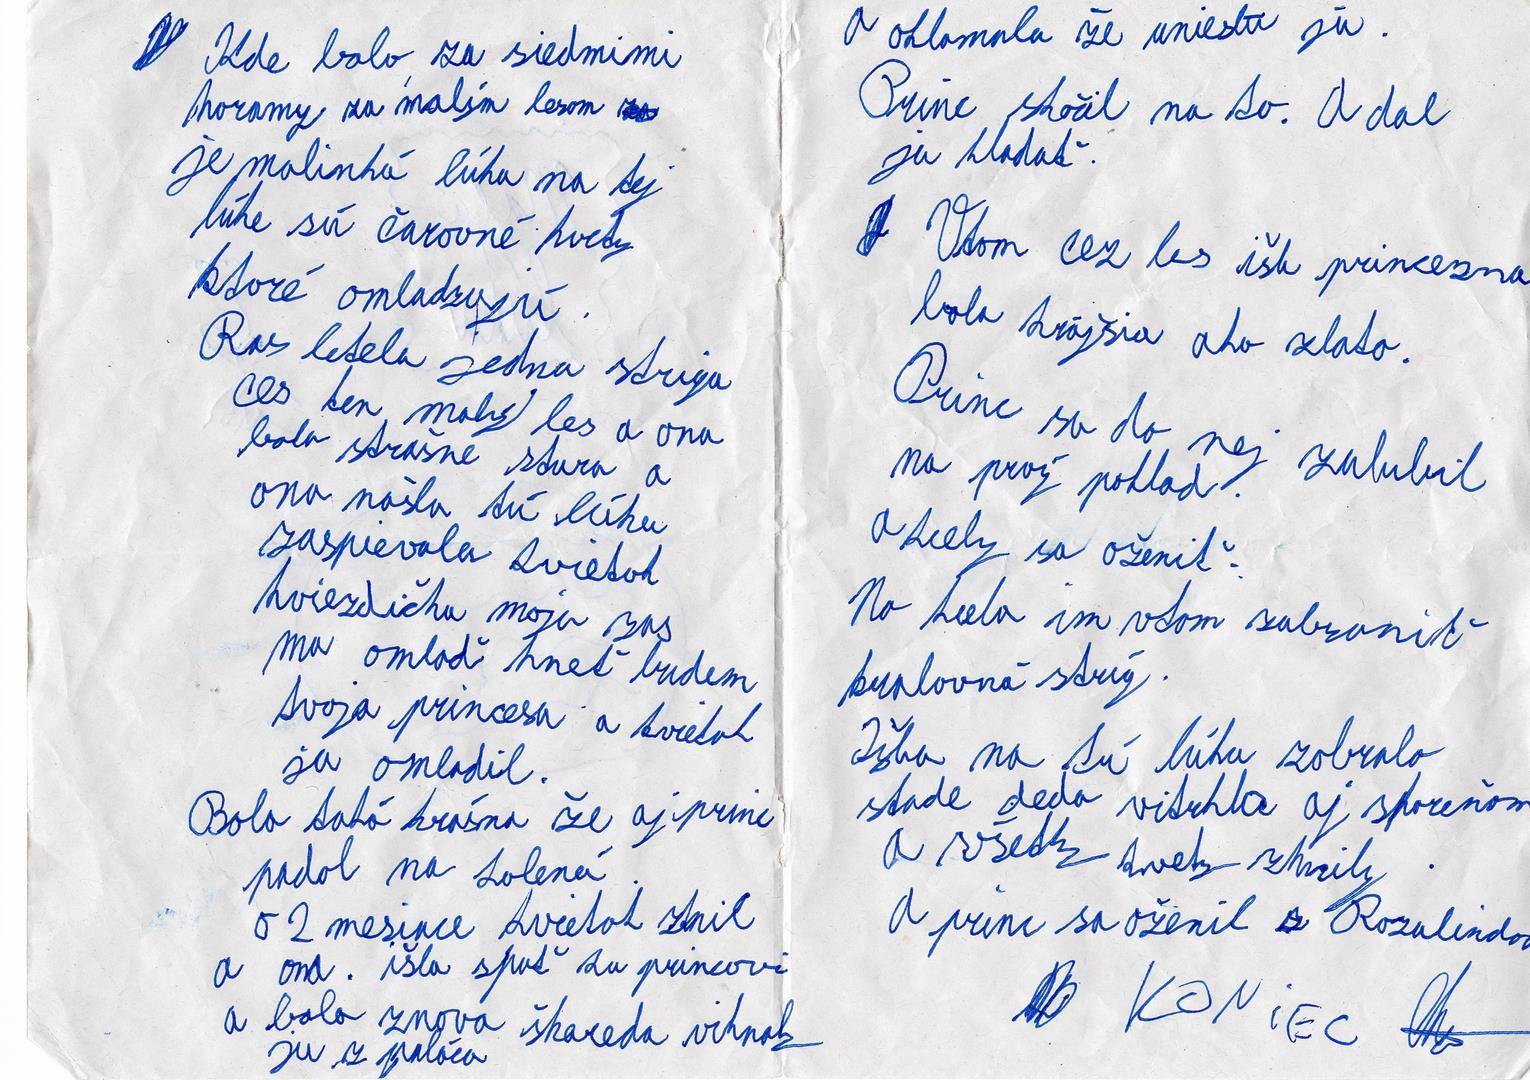 Kde bolo, za siedmimi
horamy, za malím lesom
je malinká lúka na tej
lúke sú čarovné kvety
ktoré omladzujú.
Ras letela jedna striga
ces ten malý les a ona
bola strašne stara a
ona našla tú lúku
zaspievala kvietok
hviezdička moja zas
ma omlaď hneť budem
tvoja princesa a kvietok
ju omladil.
Bola taká krásna že aj princ
padol na kolená.
o 2 mesiace kvietok zhil
a ona. išla späť ku princovi
a bola znova škareda vihnaly
ju z paláca
a oklamala že uniesla ju.
Princ skočil na to. A dal
ju hladať.
Vtom cez les išla princezna
bola krajšia ako zlato.
Princ sa do nej zalubil
na prvý pohlad.
a hcely sa oženiť.
No hcela im vtom zabraniť
kralovná stríg.
Išla na tú lúku zobrala
stade deda vitrhla aj s koreňom
a všetky kvety zhnily.
A princ sa oženil s Rozalindou
KONiEC